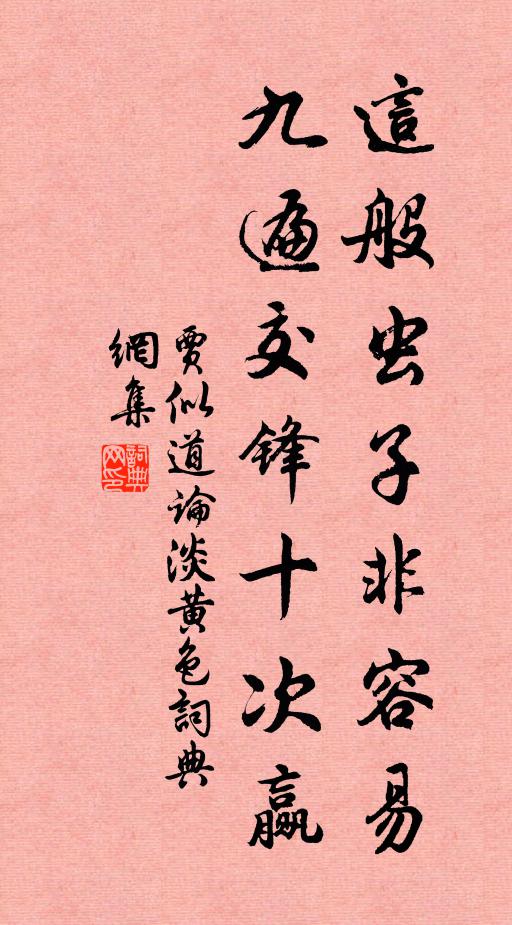 這般虫子非容易
九遍交鋒十次贏
賈似道論淡黃色詞典
網集
詞典
网印